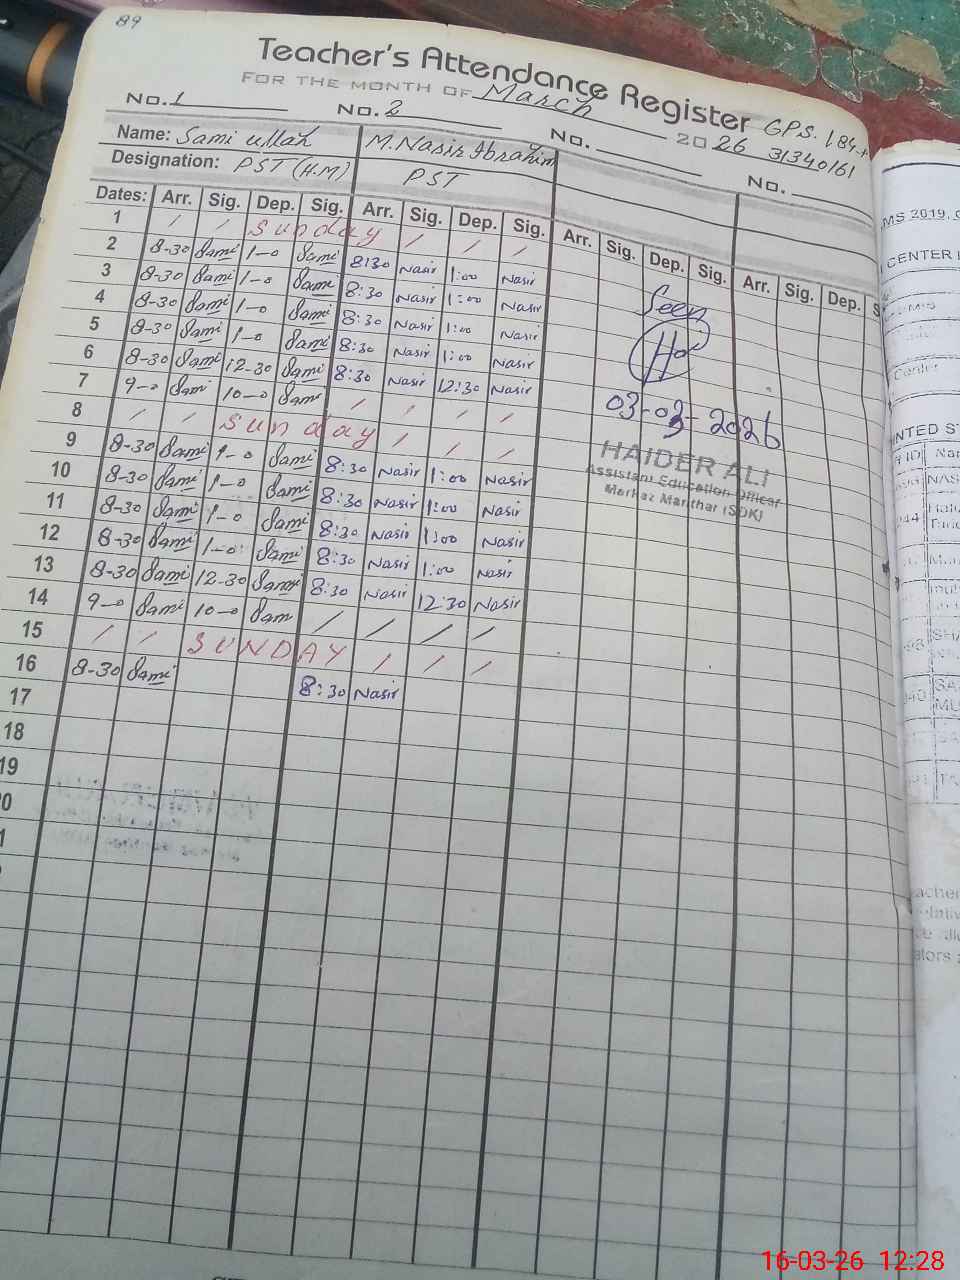 89
Teacher's Attendance Register
FOR THE MONTH OF March 2026 GPS. 184
31340161
No. 1 No. 2 No. No.
Name: Sami ullah M. Nasir Ibrahim
Designation: PST (H.M) PST
Dates: Arr. Sig. Dep. Sig. Arr. Sig. Dep. Sig. Arr. Sig. Dep. Sig. Arr. Sig. Dep. S
1 / / Sunday / / /
2 8-30 Sami 1-0 Sami 8:30 Nasir 1:00 Nasir
3 8-30 Sami 1-0 Sami 8:30 Nasir 1:00 Nasir
4 8-30 Sami 1-0 Sami 8:30 Nasir 1:00 Nasir
5 8-30 Sami 1-0 Sami 8:30 Nasir 1:00 Nasir
6 8-30 Sami 12-30 Sami 8:30 Nasir 12:30 Nasir
7 9-0 Sami 10-0 Sami / / / /
8 / / Sunday / / /
9 8-30 Sami 1-0 Sami 8:30 Nasir 1:00 Nasir
10 8-30 Sami 1-0 Sami 8:30 Nasir 1:00 Nasir
11 8-30 Sami 1-0 Sami 8:30 Nasir 1:00 Nasir
12 8-30 Sami 1-0 Sami 8:30 Nasir 1:00 Nasir
13 8-30 Sami 12-30 Sami 8:30 Nasir 12:30 Nasir
14 9-0 Sami 10-0 Sam / / / /
15 / / SUNDAY / / /
16 8-30 Sami 8:30 Nasir
17
18
19
Seen
03-03-2026
HAIDER ALI
Assistant Education Officer
Markaz Manthar (SDK)
MS 2019,
CENTER
Center
NTED S
16-03-26 12:28